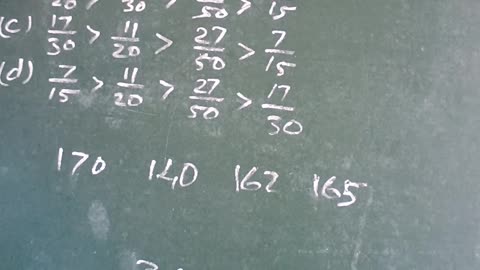 20 30 50 15
(c) 17/30 > 11/20 > 27/50 > 7/15
(d) 7/15 > 11/20 > 27/50 > 17/50
170 140 162 165